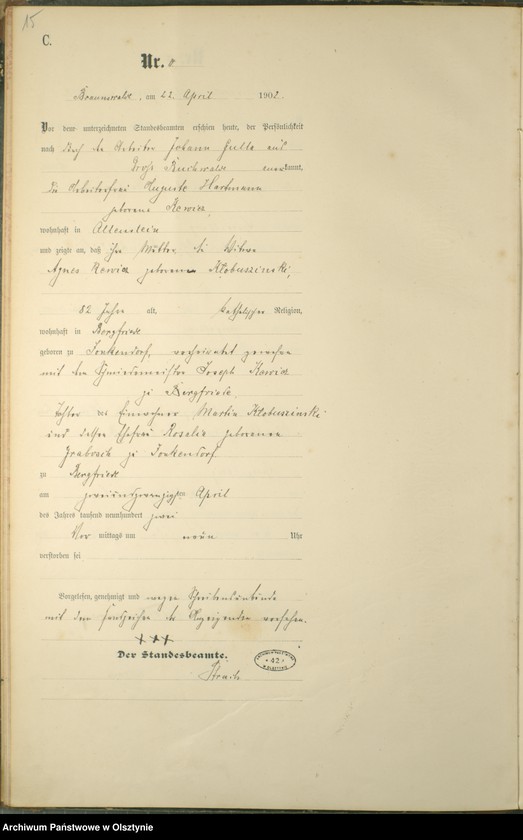 15
C.
Nr. 8
Braunswalde, am 23. April 1902.
Vor dem unterzeichneten Standesbeamten erschien heute, der Persönlichkeit
nach durch den Arbeiter Johann
Groß Buchwalde anerkannt,
die Arbeiterfrau Auguste Hartmann
geborene Rewicz,
wohnhaft in Allenstein
und zeigte an, daß ihre Mutter, die Witwe
Agnes Rewicz geborene Klobuszinski,
82 Jahre alt, katholischer Religion,
wohnhaft in Bergfriede
geboren zu Jonkendorf, verheiratet gewesen
mit dem Schmiedemeister Joseph Rewicz
zu Bergfriede,
Tochter des Einwohner Martin Klobuszinski
und dessen Ehefrau Rosalie geborenen
zu Jonkendorf
zu Bergfriede
am zweiundzwanzigsten April
des Jahres tausend neunhundert zwei
Vor mittags um neun Uhr
verstorben sei
Vorgelesen, genehmigt und wegen Schreibensunkunde
mit dem Handzeichen der Anzeigenden versehen.
+++
Der Standesbeamte.
42
Archiwum Państwowe w Olsztynie